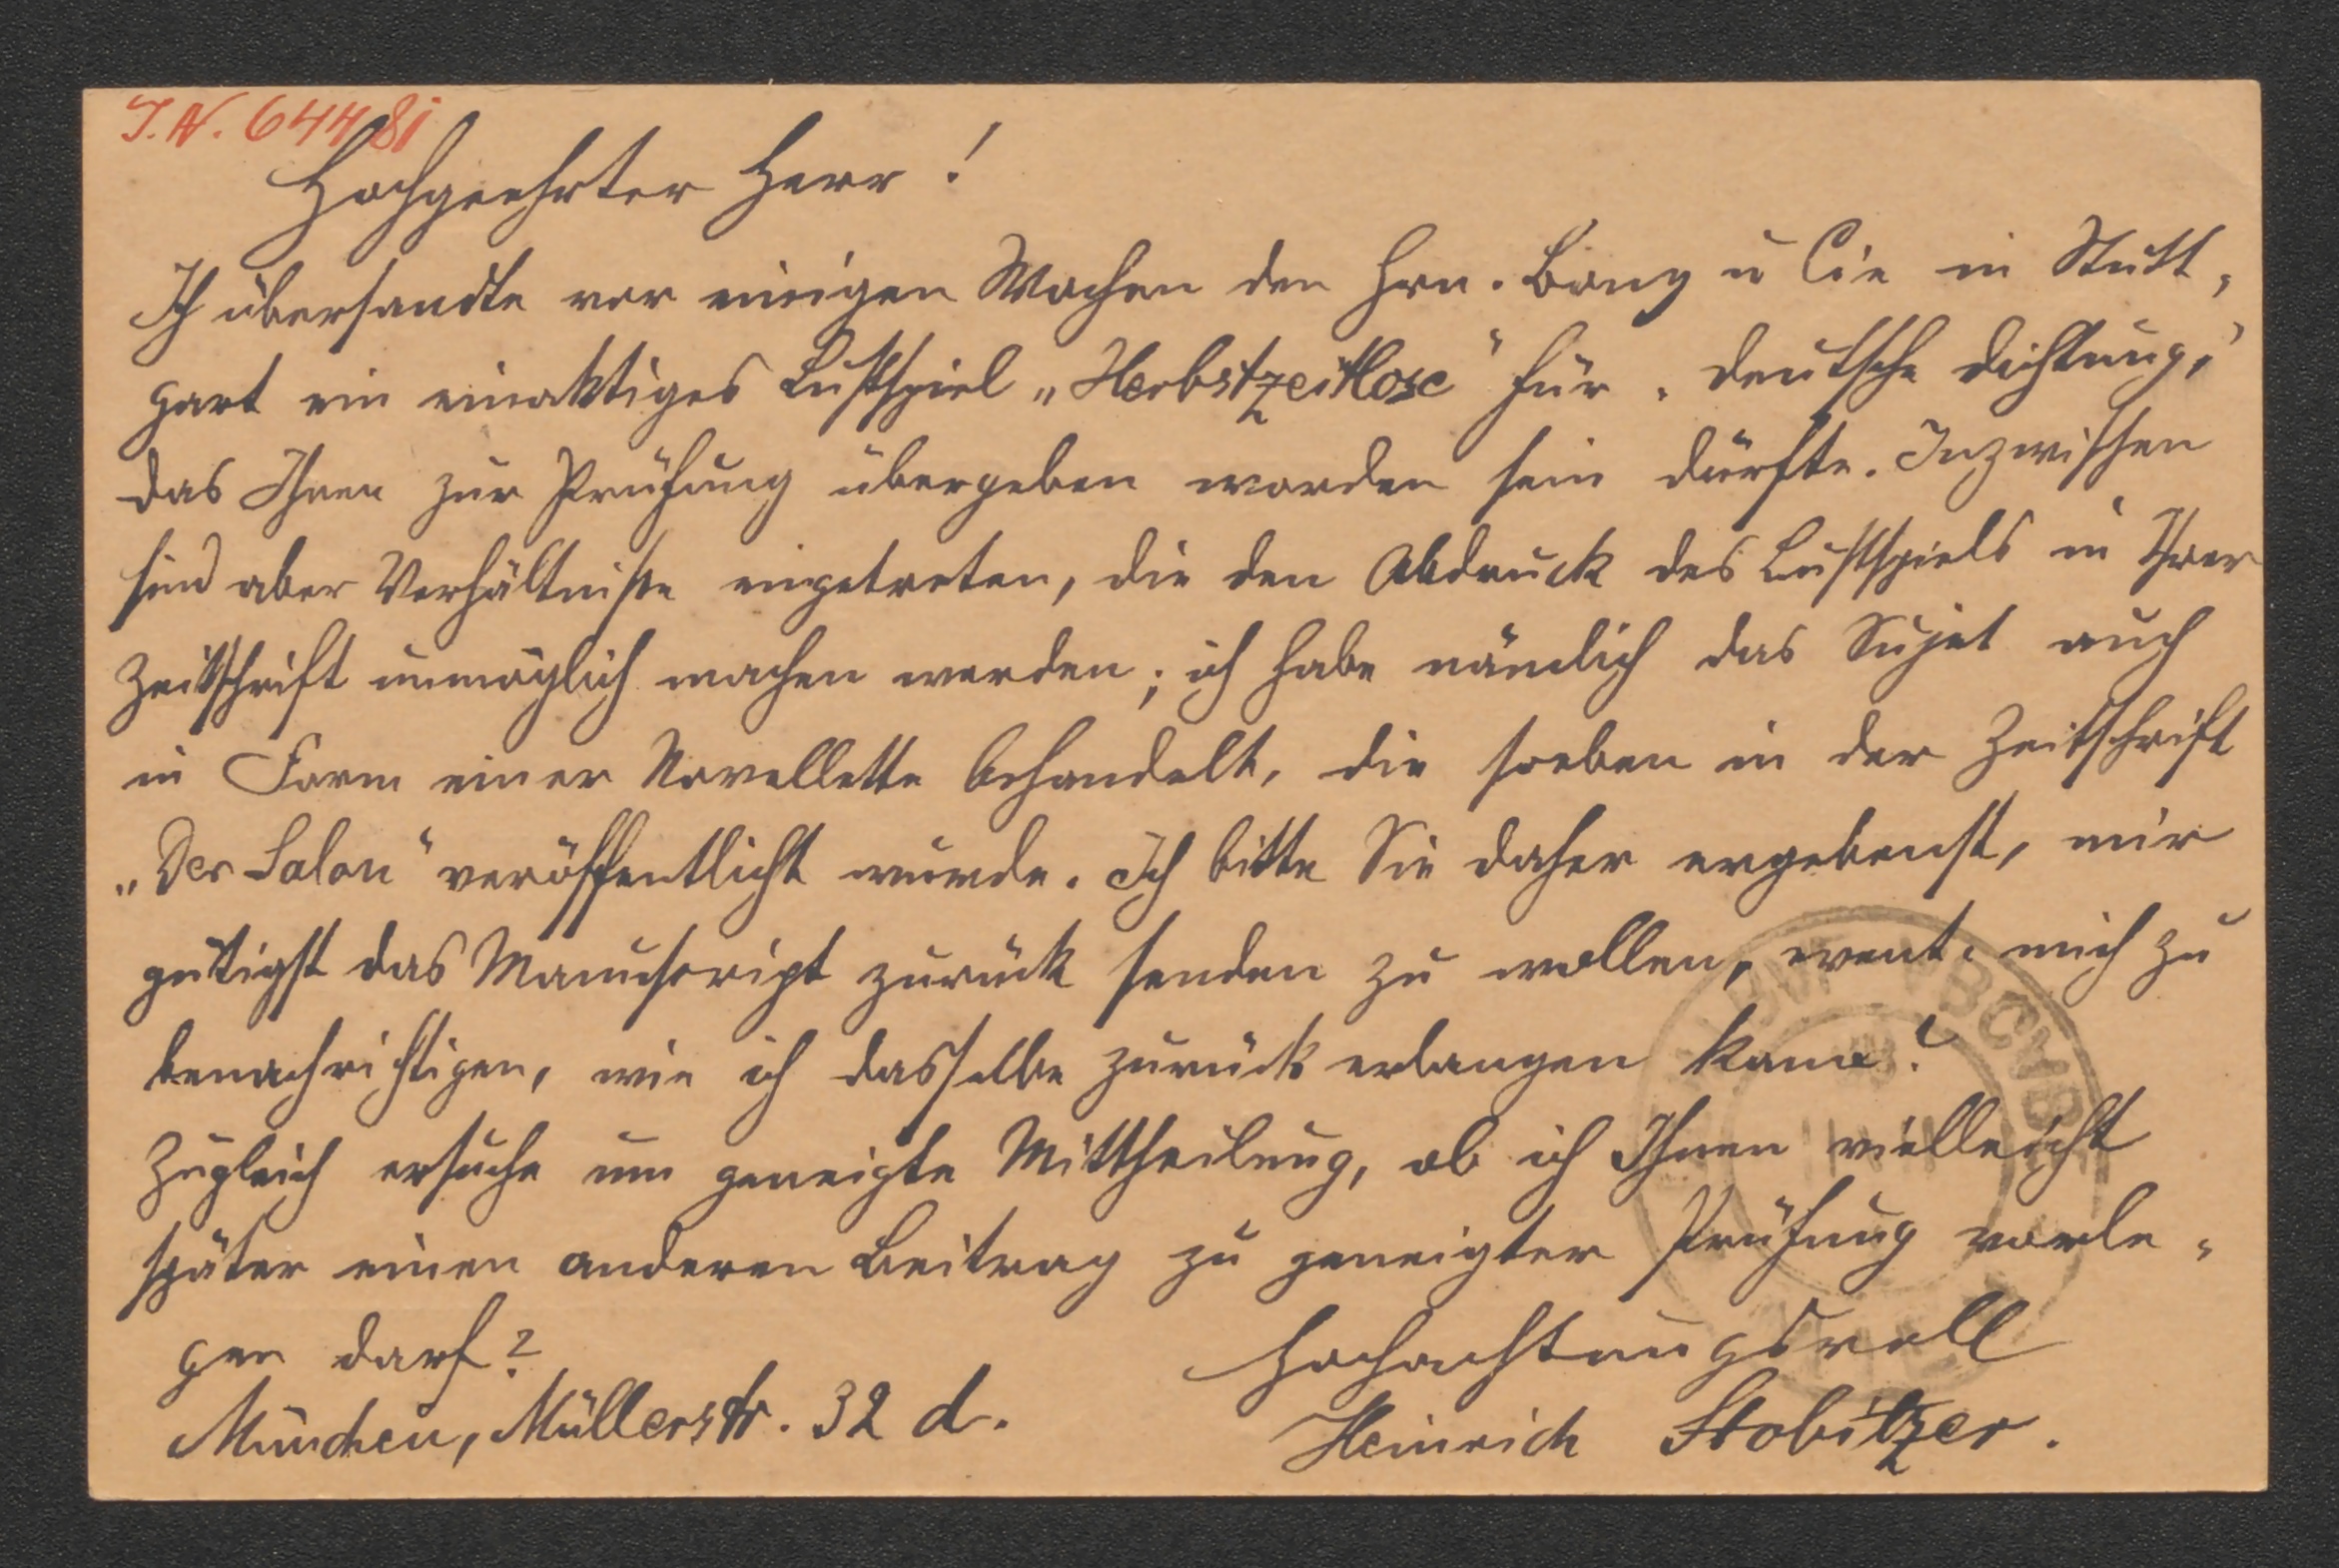 I.N. 64481
Hochgeehrter Herr!
Ich übersandte vor einigen Wochen den Hrn. Bong u Cie in Stutt-
gart ein einaktiges Lustspiel „Herbstzeitlose“ für „Deutsche Dichtung,“
das Ihnen zur Prüfung übergeben worden sein dürfte. Inzwischen
sind aber Verhältnisse eingetreten, die den Abdruck des Lustspiels in Ihrer
Zeitschrift unmöglich machen werden; ich habe nämlich das Sujet auch
in Form einer Novellette behandelt, die soeben in der Zeitschrift
„Der Salon“ veröffentlicht wurde. Ich bitte Sie daher ergebenst, mir
gütigst das Manuscript zurück senden zu wollen, event. mich zu
benachrichtigen, wie ich dasselbe zurück erlangen kann?
Zugleich ersuche um geneigte Mittheilung, ob ich Ihnen vielleicht
später einen anderen Beitrag zu geneigter Prüfung vorle-
gen darf?
Hochachtungsvoll
München, Müllerstr. 32 d.
Heinrich Stobitzer.